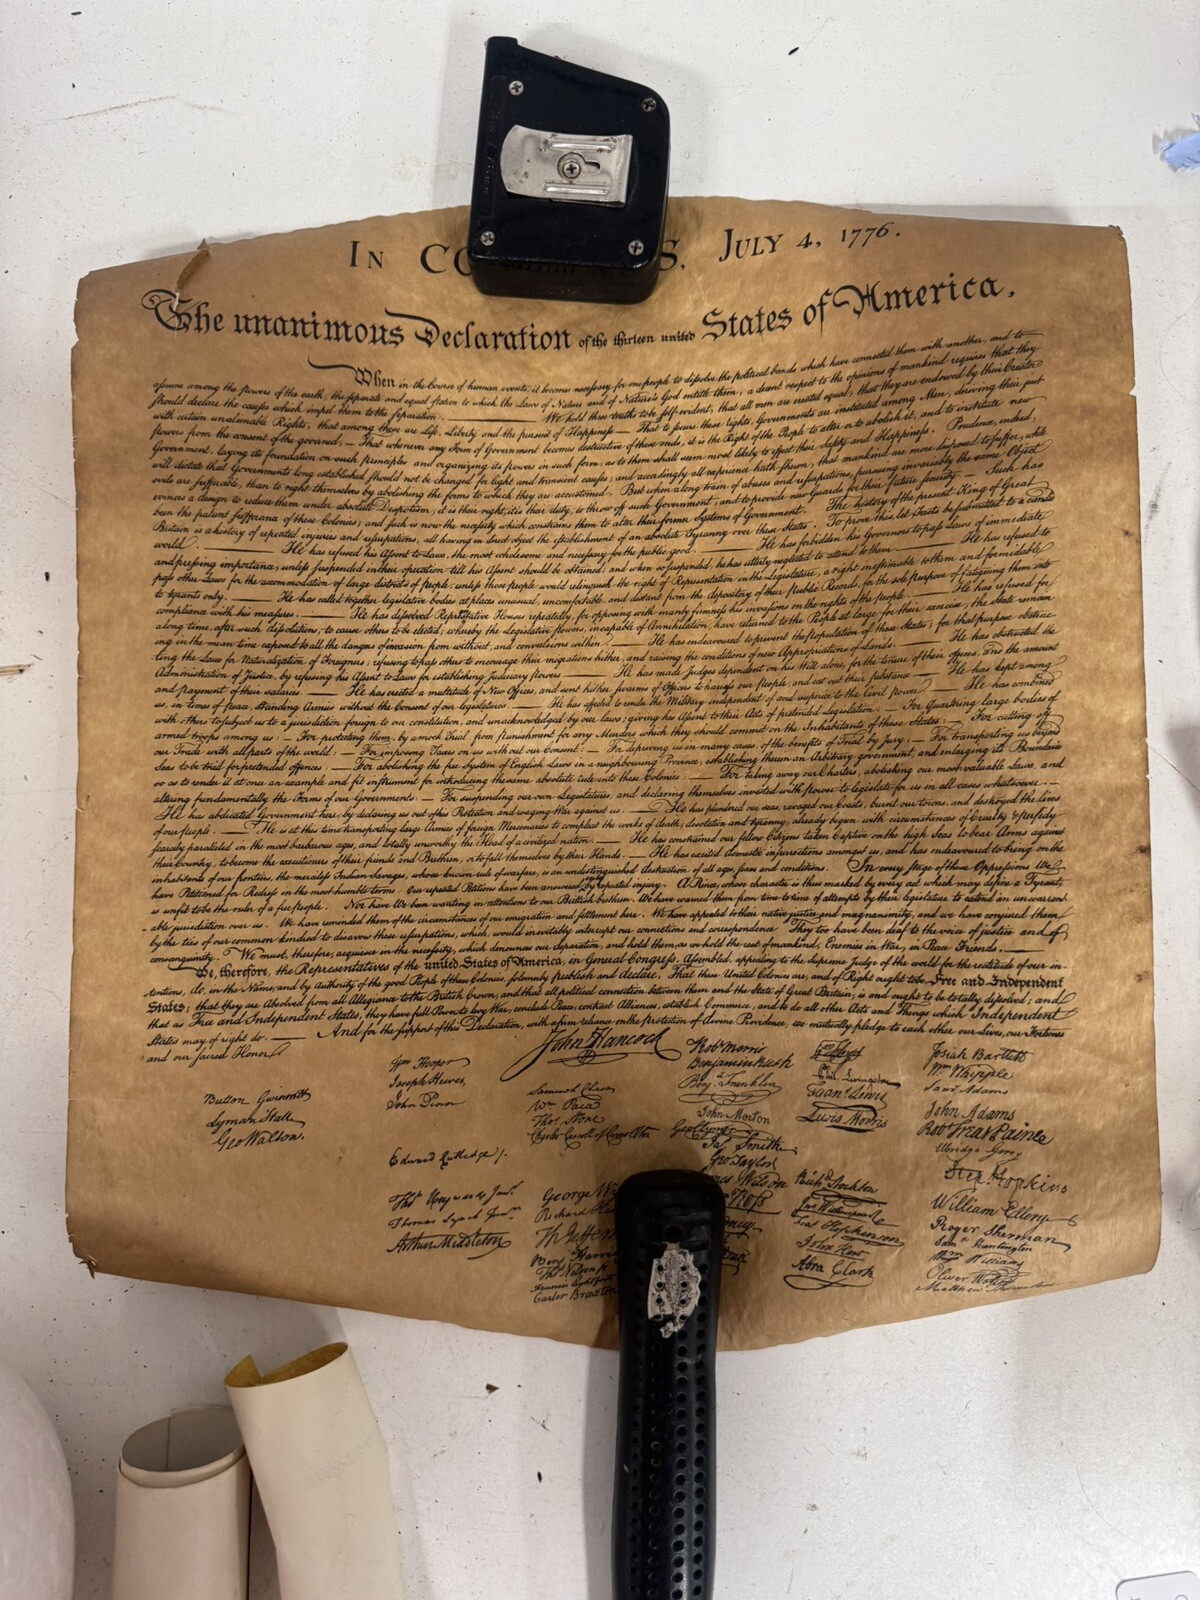 IN CO S. JULY 4, 1776.
The unanimous Declaration of the thirteen united States of America.
When in the Course of human events, it becomes necessary for one people to dissolve the political bands which have connected them with another, and to
assume among the powers of the earth, the separate and equal station to which the Laws of Nature and of Nature's God entitle them, a decent respect to the opinions of mankind requires that they
should declare the causes which impel them to the separation. — We hold these truths to be self-evident, that all men are created equal, that they are endowed by their Creator
with certain unalienable Rights, that among these are Life, Liberty and the pursuit of Happiness — That to secure these rights, Governments are instituted among Men, deriving their just
powers from the consent of the governed, — That whenever any Form of Government becomes destructive of these ends, it is the Right of the People to alter or to abolish it, and to institute new
Government, laying its foundation on such principles and organizing its powers in such form, as to them shall seem most likely to effect their Safety and Happiness. Prudence, indeed,
will dictate that Governments long established should not be changed for light and transient causes; and accordingly all experience hath shewn, that mankind are more disposed to suffer, while
evils are sufferable, than to right themselves by abolishing the forms to which they are accustomed. But when a long train of abuses and usurpations, pursuing invariably the same Object
evinces a design to reduce them under absolute Despotism, it is their right, it is their duty, to throw off such Government, and to provide new Guards for their future security. — Such has
been the patient sufferance of these Colonies; and such is now the necessity which constrains them to alter their former Systems of Government. The history of the present King of Great
Britain is a history of repeated injuries and usurpations, all having in direct object the establishment of an absolute Tyranny over these States. To prove this, let Facts be submitted to a candid
world. — He has refused his Assent to Laws, the most wholesome and necessary for the public good. — He has forbidden his Governors to pass Laws of immediate
and pressing importance, unless suspended in their operation till his Assent should be obtained; and when so suspended, he has utterly neglected to attend to them — He has refused to
pass other Laws for the accommodation of large districts of people, unless those people would relinquish the right of Representation in the Legislature, a right inestimable to them and formidable
to tyrants only. — He has called together legislative bodies at places unusual, uncomfortable, and distant from the depository of their public Records, for the sole purpose of fatiguing them into
compliance with his measures. — He has dissolved Representative Houses repeatedly, for opposing with manly firmness his invasions on the rights of the people. — He has refused for
a long time, after such dissolutions, to cause others to be elected; whereby the Legislative powers, incapable of Annihilation, have returned to the People at large for their exercise; the State remain
ing in the mean time exposed to all the dangers of invasion from without, and convulsions within. — He has endeavoured to prevent the population of these States; for that purpose obstruc
ting the Laws for Naturalization of Foreigners; refusing to pass others to encourage their migrations hither, and raising the conditions of new Appropriations of Lands. — He has obstructed the
Administration of Justice, by refusing his Assent to Laws for establishing Judiciary powers — He has made Judges dependent on his Will alone, for the tenure of their offices, and the amount
and payment of their salaries. — He has erected a multitude of New Offices, and sent hither swarms of Officers to harass our people, and eat out their substance — He has kept among
us, in times of peace, Standing Armies without the Consent of our legislatures. — He has affected to render the Military independent of and superior to the Civil power. — He has combined
with others to subject us to a jurisdiction foreign to our constitution, and unacknowledged by our laws; giving his Assent to their Acts of pretended Legislation: — For Quartering large bodies of
armed troops among us: — For protecting them, by a mock Trial, from punishment for any Murders which they should commit on the Inhabitants of these States: — For cutting off
our Trade with all parts of the world: — For imposing Taxes on us without our Consent: — For depriving us in many cases, of the benefits of Trial by Jury: — For transporting us beyond
Seas to be tried for pretended offences. — For abolishing the free System of English Laws in a neighbouring Province, establishing therein an Arbitrary government, and enlarging its Boundaries
so as to render it at once an example and fit instrument for introducing the same absolute rule into these Colonies: — For taking away our Charters, abolishing our most valuable Laws, and
altering fundamentally the Forms of our Governments: — For suspending our own Legislatures, and declaring themselves invested with power to legislate for us in all cases whatsoever. —
He has abdicated Government here, by declaring us out of his Protection and waging War against us — He has plundered our seas, ravaged our Coasts, burnt our towns, and destroyed the lives
of our people. — He is at this time transporting large Armies of foreign Mercenaries to compleat the works of death, desolation and tyranny, already begun with circumstances of Cruelty & perfidy
scarcely paralleled in the most barbarous ages, and totally unworthy the Head of a civilized nation. — He has constrained our fellow Citizens taken Captive on the high Seas to bear Arms against
their Country, to become the executioners of their friends and Brethren, or to fall themselves by their Hands. — He has excited domestic insurrections amongst us, and has endeavoured to bring on the
inhabitants of our frontiers, the merciless Indian Savages, whose known rule of warfare, is an undistinguished destruction of all ages, sexes and conditions. In every stage of these Oppressions We
have Petitioned for Redress in the most humble terms: Our repeated Petitions have been answered only by repeated injury. A Prince, whose character is thus marked by every act which may define a Tyrant,
is unfit to be the ruler of a free people. Nor have We been wanting in attentions to our Brittish brethren. We have warned them from time to time of attempts by their legislature to extend an unwarrant
able jurisdiction over us. We have reminded them of the circumstances of our emigration and settlement here. We have appealed to their native justice and magnanimity, and we have conjured them
by the ties of our common kindred to disavow these usurpations, which, would inevitably interrupt our connections and correspondence They too have been deaf to the voice of justice and of
consanguinity. We must, therefore, acquiesce in the necessity, which denounces our Separation, and hold them, as we hold the rest of mankind, Enemies in War, in Peace Friends. —
We, therefore, the Representatives of the united States of America, in General Congress, Assembled, appealing to the Supreme Judge of the world for the rectitude of our in-
tentions, do, in the Name, and by Authority of the good People of these Colonies, solemnly publish and declare, That these United Colonies are, and of Right ought to be Free and Independent
States; that they are Absolved from all Allegiance to the British Crown, and that all political connection between them and the State of Great Britain, is and ought to be totally dissolved; and
that as Free and Independent States, they have full Power to levy War, conclude Peace, contract Alliances, establish Commerce, and to do all other Acts and Things which Independent
States may of right do. — And for the support of this Declaration, with a firm reliance on the protection of divine Providence, we mutually pledge to each other our Lives, our Fortunes
and our sacred Honor.
John Hancock
Button Gwinnett
Lyman Hall
Geo Walton.
Wm Hooper
Joseph Hewes,
John Penn
Edward Rutledge /.
Thos Heyward Junr.
Thomas Lynch Junr.
Arthur Middleton
Samuel Chase
Wm Paca
Thos Stone
Charles Carroll of Carrollton
George W
Richard He
Th Jeffers
Benj Harris
Thos Nelson jr
Francis Lightfoot
Carter Braxton
Robt Morris
Benjamin Rush
Benj. Franklin
John Morton
Geo Clymer
Jas. Smith
Geo. Taylor
mes Wilson
Ross
dney
Phil. Livingston
Frans. Lewis
Lewis Morris
Richd Stockton
Jno Witherspoon
Fras. Hopkinson
John Hart
Abra Clark
Josiah Bartlett
Wm Whipple
Saml Adams
John Adams
Robt Treat Paine
Elbridge Gerry
Step. Hopkins
William Ellery
Roger Sherman
Sam Huntington
Wm Williams
Oliver Wolcott
Matthew Thornton